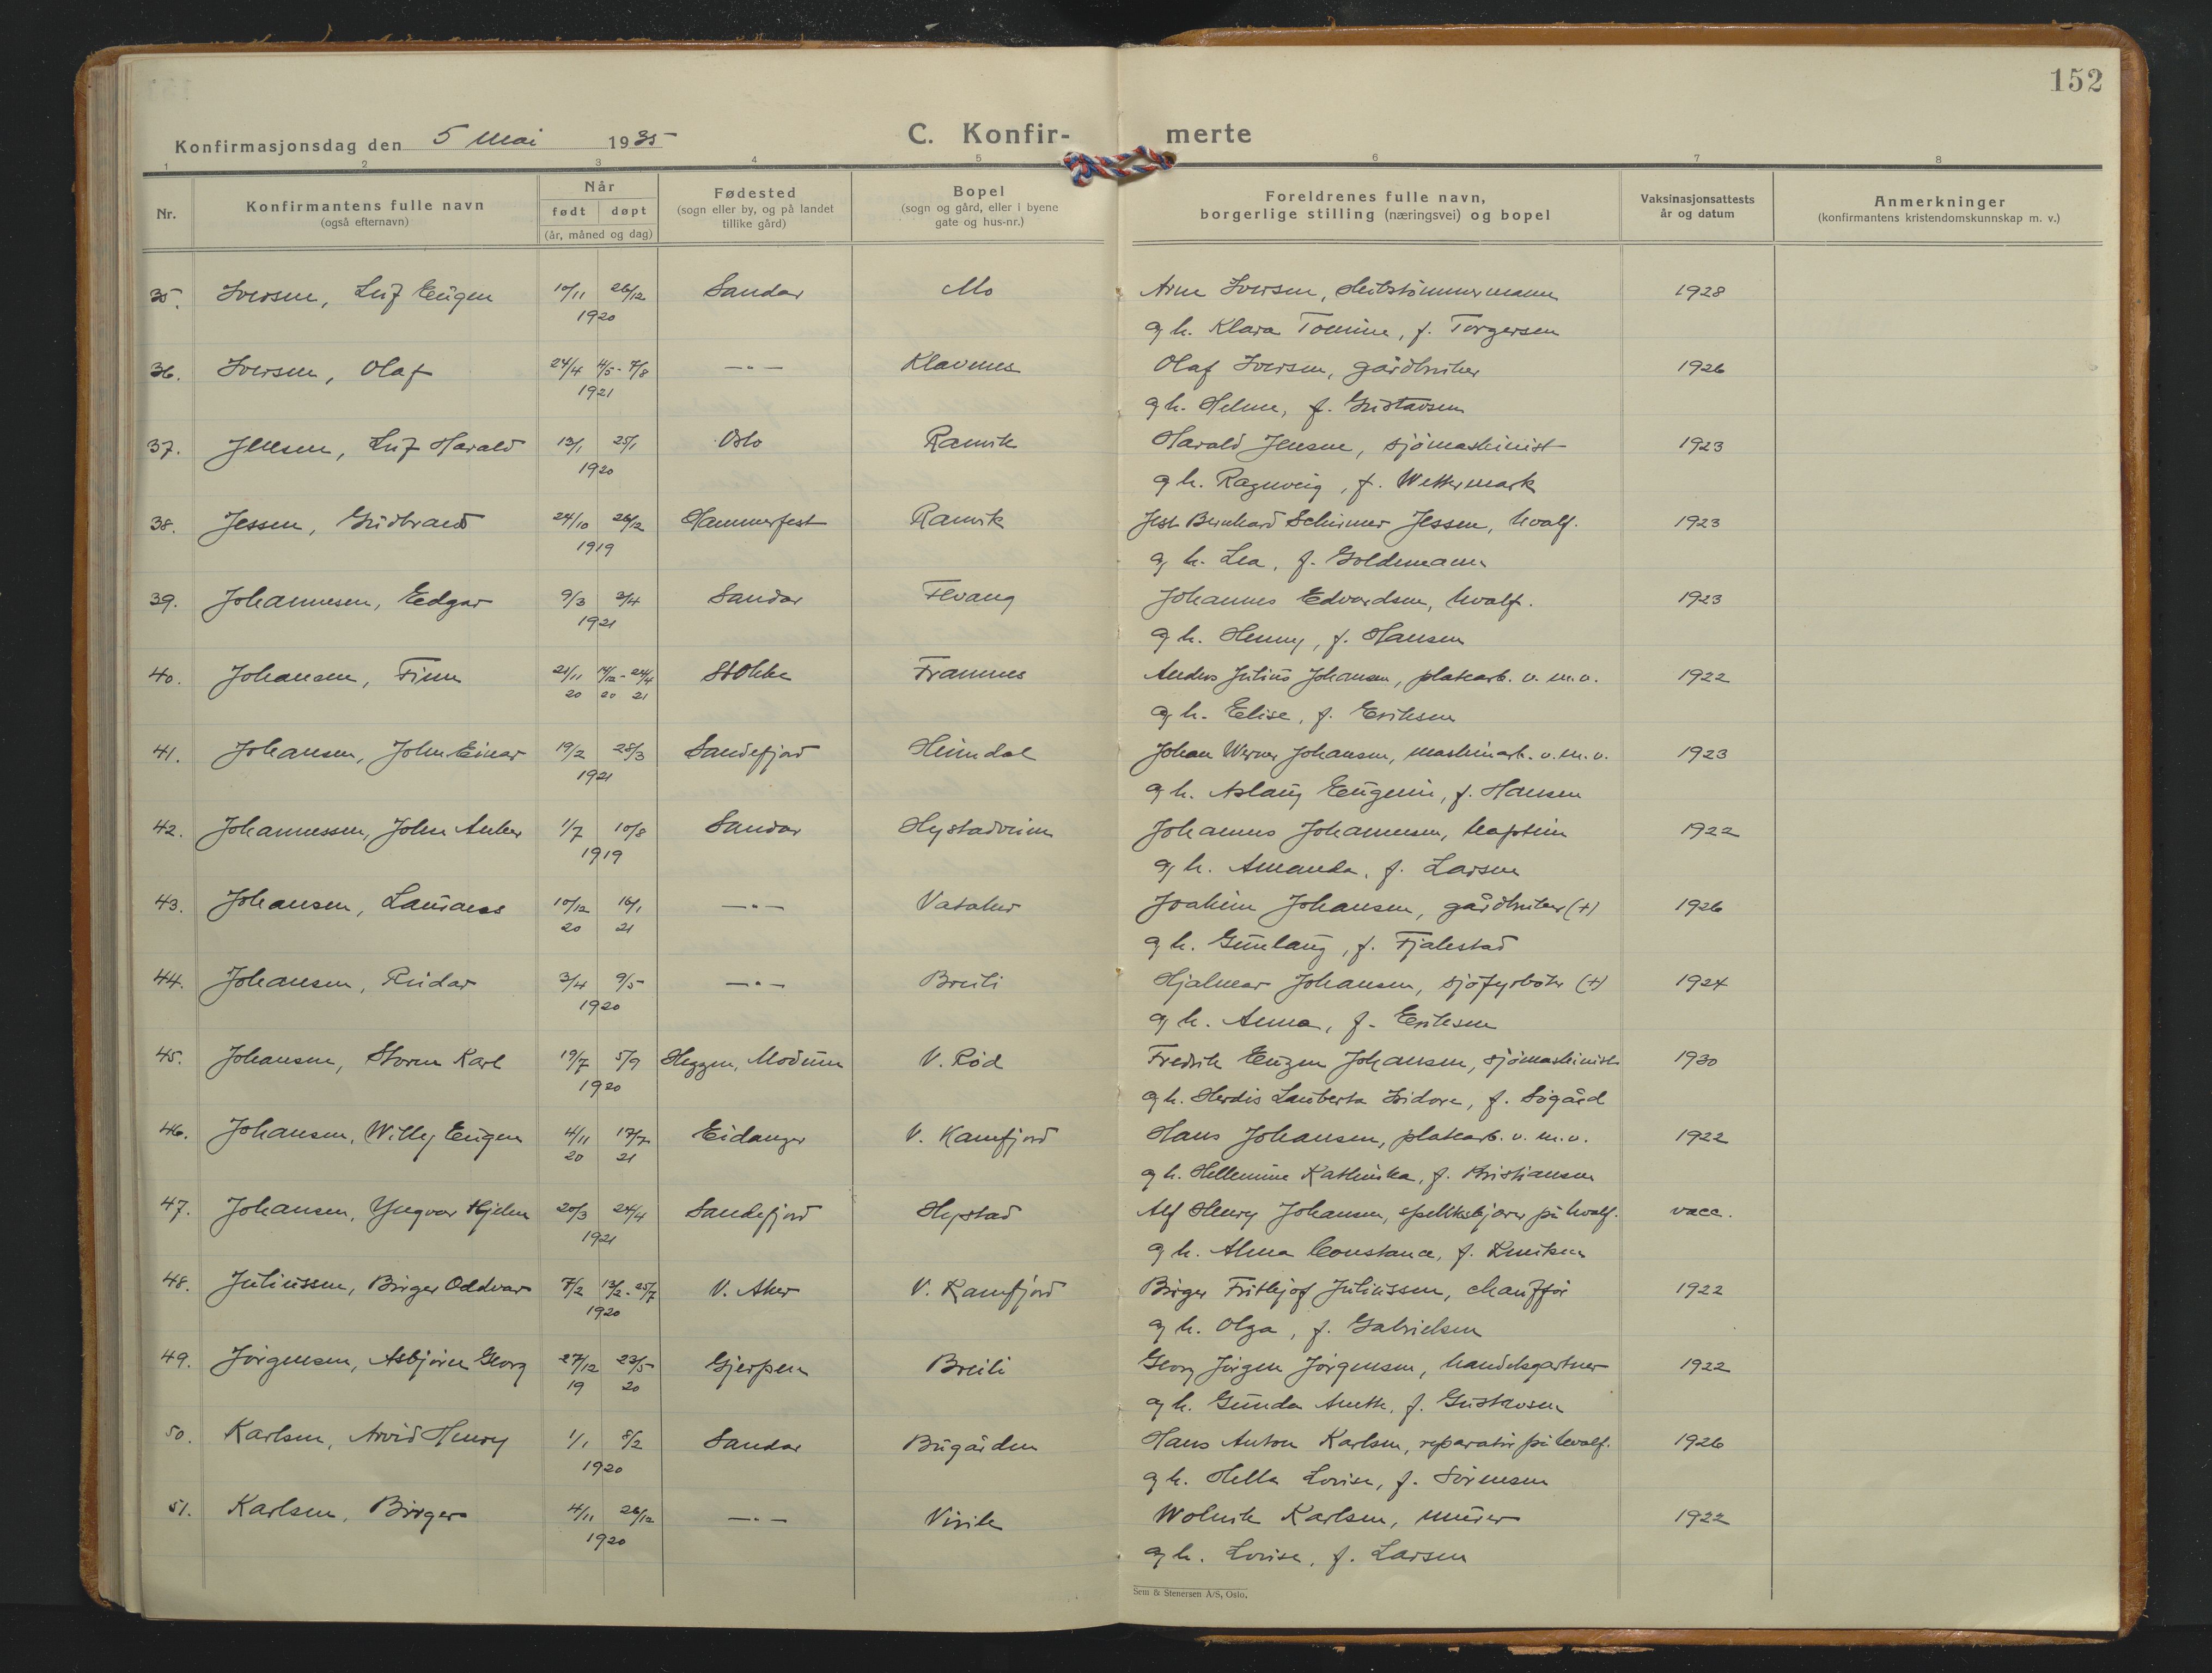 152
Konfirmasjonsdag den 5 Mai 1935
C. Konfir- merte
1 2 3 4 5 6 7 8
Nr.
Konfirmantens fulle navn
(også efternavn)
Når
født døpt
(år, måned og dag)
Fødested
(sogn eller by, og på landet
tillike gård)
Bopel
(sogn og gård, eller i byene
gate og hus-nr.)
Foreldrenes fulle navn,
borgerlige stilling (næringsvei) og bopel
Vaksinasjonsattests
år og datum
Anmerkninger
(konfirmantens kristendomskunnskap m. v.)
35. Iversen, Leif Eugen 10/11 26/12 Sandar Mo Arne Iversen, skibstømmermann 1928
1920 og h. Klara Tomine, f. Torgersen
36. Iversen, Olaf 24/4 4/5 - 7/8 —"— Klavenes Olaf Iversen, gårdbruker 1926
1921 og h. Helene, f. Gustavsen
37. Jensen, Leif Harald 13/1 25/1 Oslo Ranvik Harald Jensen, sjömaskinist 1923
1920 og h. Ragnveig, f. Wettermark
38. Jessen, Gudbrand 24/10 26/12 Hammerfest Ranvik Jess Bernhard Schirmer Jessen, hvalf. 1923
1919 og h. Lea, f. Goldemann
39. Johannesen, Edgar 9/3 3/4 Sandar Fevang Johannes Edvardsen, hvalf. 1923
1921 og h. Henny, f. Hansen
40. Johansen, Finn 21/11 14/12 - 24/4 Stokke Framnes Anders Julius Johansen, platearb. v. m.v. 1922
20 20 21 og h. Elise, f. Eriksen
41. Johansen, John Einar 19/2 28/3 Sandefjord Heimdal Johan Werner Johansen, maskinarb. v. m. v. 1923
1921 og h. Aslaug Eugenie, f. Hansen
42. Johannessen, John Anker 1/7 10/8 Sandar Hystadveien Johannes Johannesen, kaptein 1922
1919 og h. Amanda, f. Larsen
43. Johansen, Laurants 10/12 16/1 —"— Vataker Joakim Johansen, gårdbruker (+) 1926
20 21 og h. Gunlaug, f. Fjalestad
44. Johansen, Reidar 3/4 9/5 —"— Breili Hjalmar Johansen, sjöfyrböter (+) 1924
1920 og h. Anna, f. Eriksen
45. Johansen, Storm Karl 19/7 5/9 Heggen, Modum V. Röd Fredrik Eugen Johansen, sjömaskinist 1930
1920 og h. Herdis Lauberta Isidora, f. Sögård
46. Johansen, Willy Eugen 4/11 17/7 Eidanger V. Kamfjord Hans Johansen, platearb. v. m.v. 1922
20 21 og h. Hellemine Kathinka, f. Kristiansen
47. Johansen, Yngvar Hjelm 20/3 24/4 Sandefjord Hystad Alf Henry Johansen, spekkskjærer på hvalf. vacc.
1921 og h. Alma Constance, f. Knutsen
48. Juliussen, Birger Oddvar 7/2 13/2 - 25/7 V. Aker V. Kamfjord Birger Frithjof Juliussen, chaufför 1922
1920 og h. Olga, f. Gabrielsen
49. Jörgensen, Asbjörn Georg 27/12 23/5 Gjerpen Breili Georg Jörgen Jörgensen, handelsgartner 1922
19 20 og h. Gunda Anette, f. Gustavsen
50. Karlsen, Arvid Henry 1/1 8/2 Sandar Bugården Hans Anton Karlsen, reparatör på hvalf. 1926
1920 og h. Hella Lovise, f. Sörensen
51. Karlsen, Birger 4/11 26/12 —"— Virik Karlsen, murer 1922
1920 og h. Lovise, f. Larsen
Sem & Stenersen A/S, Oslo.